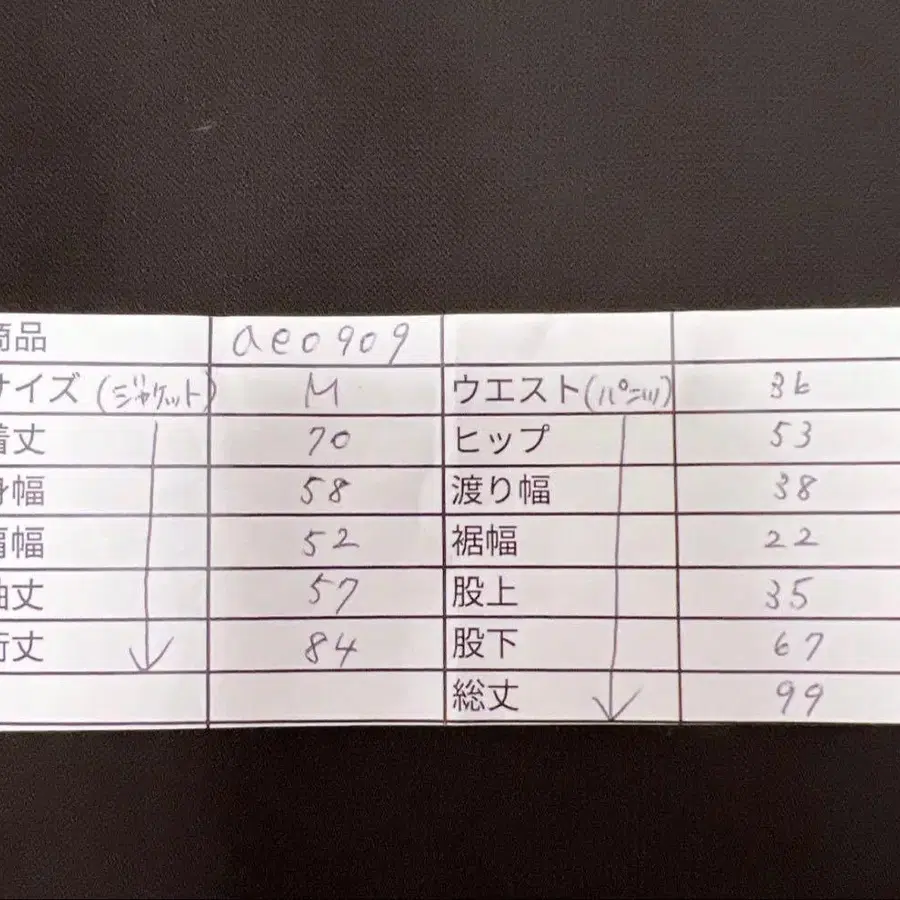 商品 aeo909
サイズ (ジャケット) M ウエスト(パンツ) 36
着丈 70 ヒップ 53
身幅 58 渡り幅 38
肩幅 52 裾幅 22
袖丈 57 股上 35
裄丈 84 股下 67
総丈 99